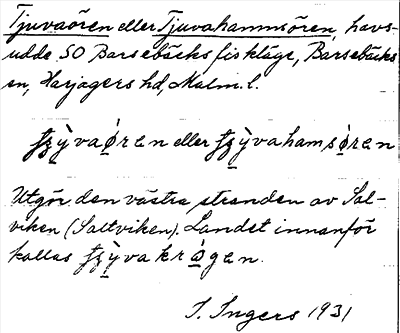 Tjuvaören eller Tjuvahamnsören, havs-
udde SO Barsebäcks fiskläge, Barsebäcks
sn, Harjagers hd, Malm. l.
ʃʒỳvaǿren eller ʃʒỳvahamsǿren
Utgör den västra stranden av Sal-
viken (Saltviken). Landet innanför
kallas ʃʒỳvakrǿgen.
I. Ingers 1931